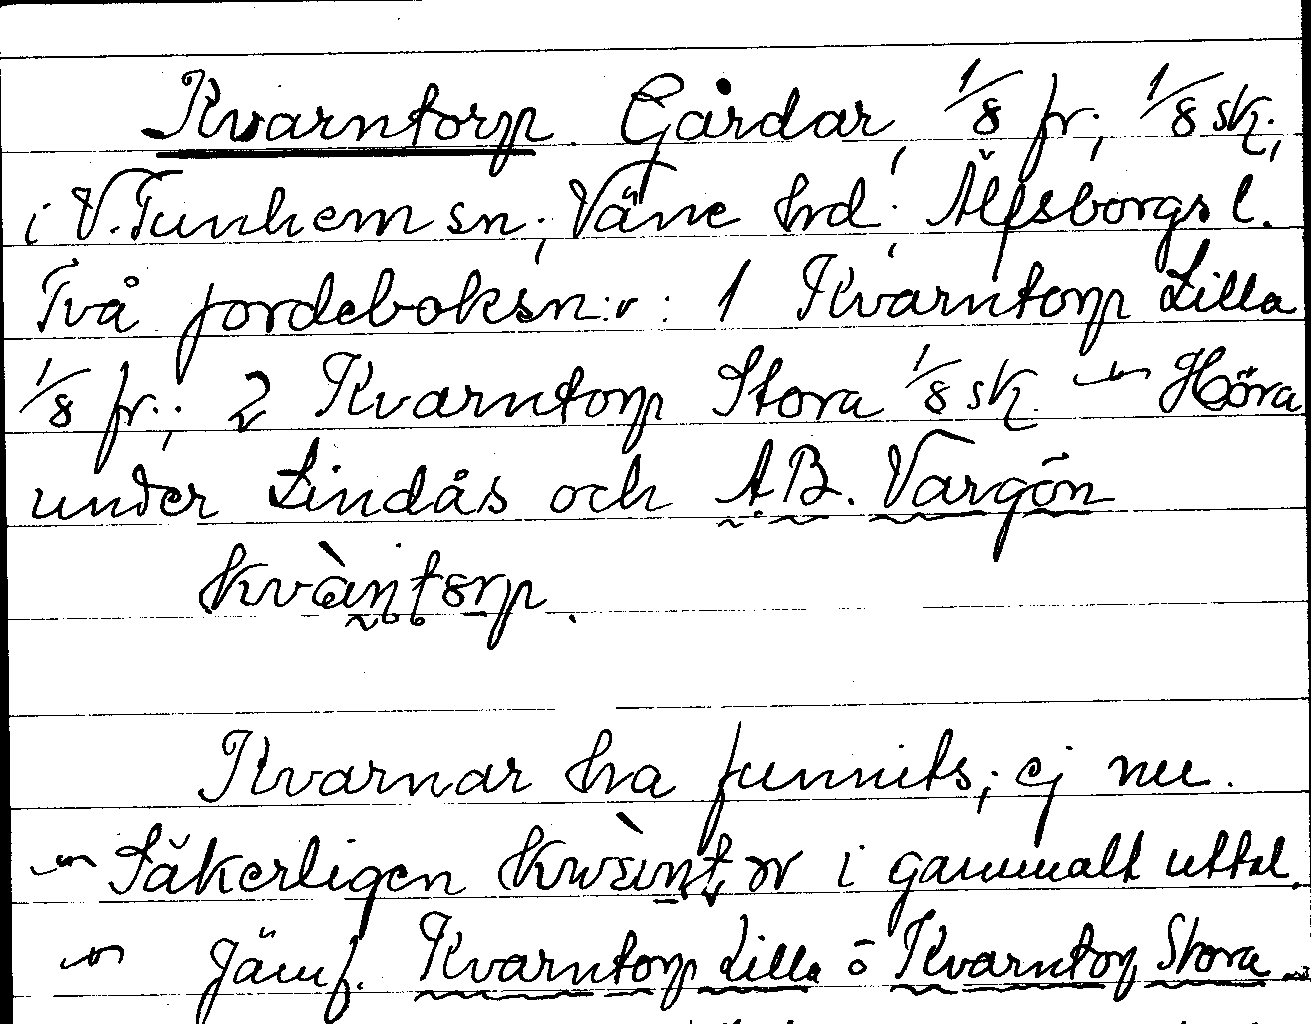 Kvarntorp. Gårdar, 1/8 fr; 1/8 sk;
i V. Tunhem sn; Väne hrd; Älfsborgs l.
Två jordeboksn:r: 1 Kvarntorp Lilla
1/8 fr.; 2 Kvarntorp Stora 1/8 sk. — Höra
under Lindås och A.B. Vargön
kvàntorp.
Kvarnar ha funnits; ej nu.
— Säkerligen i gammalt uttal.
— Jämf. Kvarntorp Lilla o Kvarntorp Stora